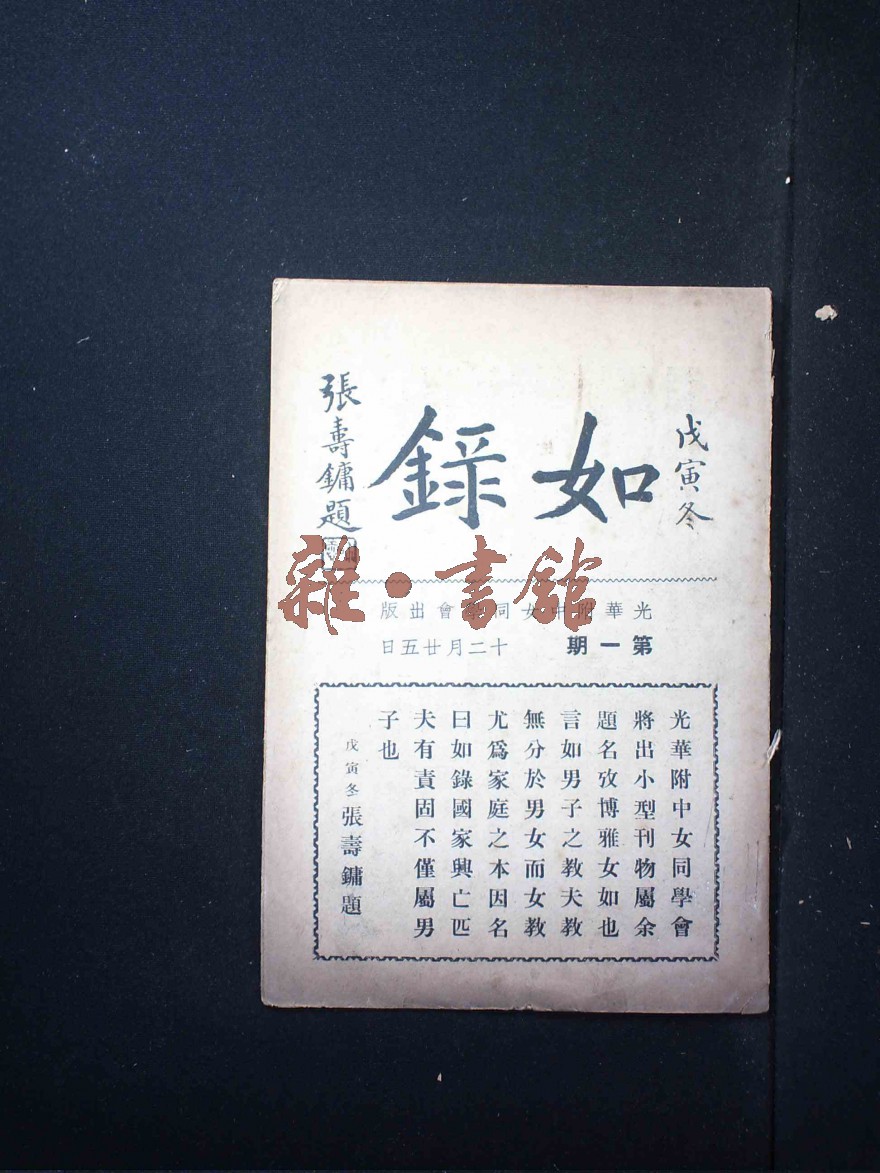 戊寅冬
如錄
張壽鏞題
光華附中女同學會出版
第一期 十二月廿五日
光華附中女同學會
將出小型刊物屬余
題名攷博雅女如也
言如男子之教夫教
無分於男女而女教
尤爲家庭之本因名
曰如錄國家興亡匹
夫有責固不僅屬男
子也
戊寅冬張壽鏞題
雜·書館